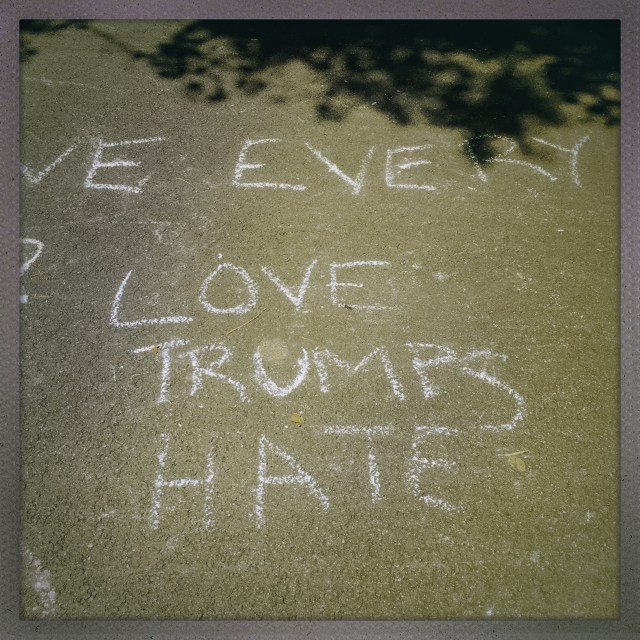 VE EVERY
?
LOVE
TRUMPS
HATE